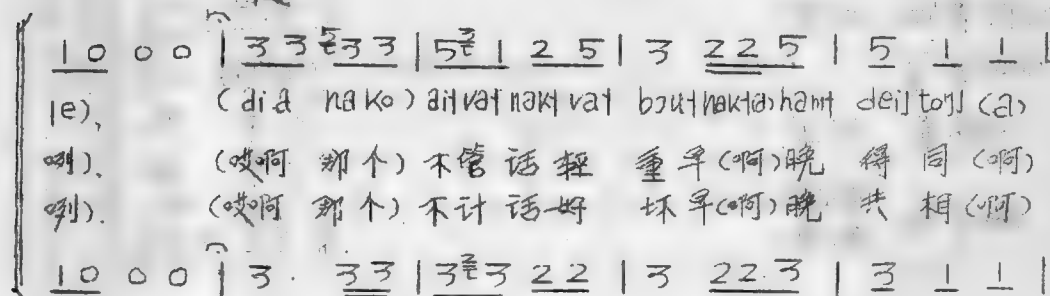 1 0 0 0 | 3 3 5 3 3 | 5 3 1 2 5 | 3 2 2 5 | 5 1 1 |
le), (di a na ko) ait vat nakt vat hant deil (a)
咧)、 (哎啊 那个) 不管话轻 重早(啊)晚 得 同 (啊)
咧). (哎啊 那个) 不计话好 坏早(啊)晚 共 相 (啊)
1 0 0 0 | 3 · 3 3 | 3 2 3 2 2 | 3 2 2 · 3 | 3 1 1 |